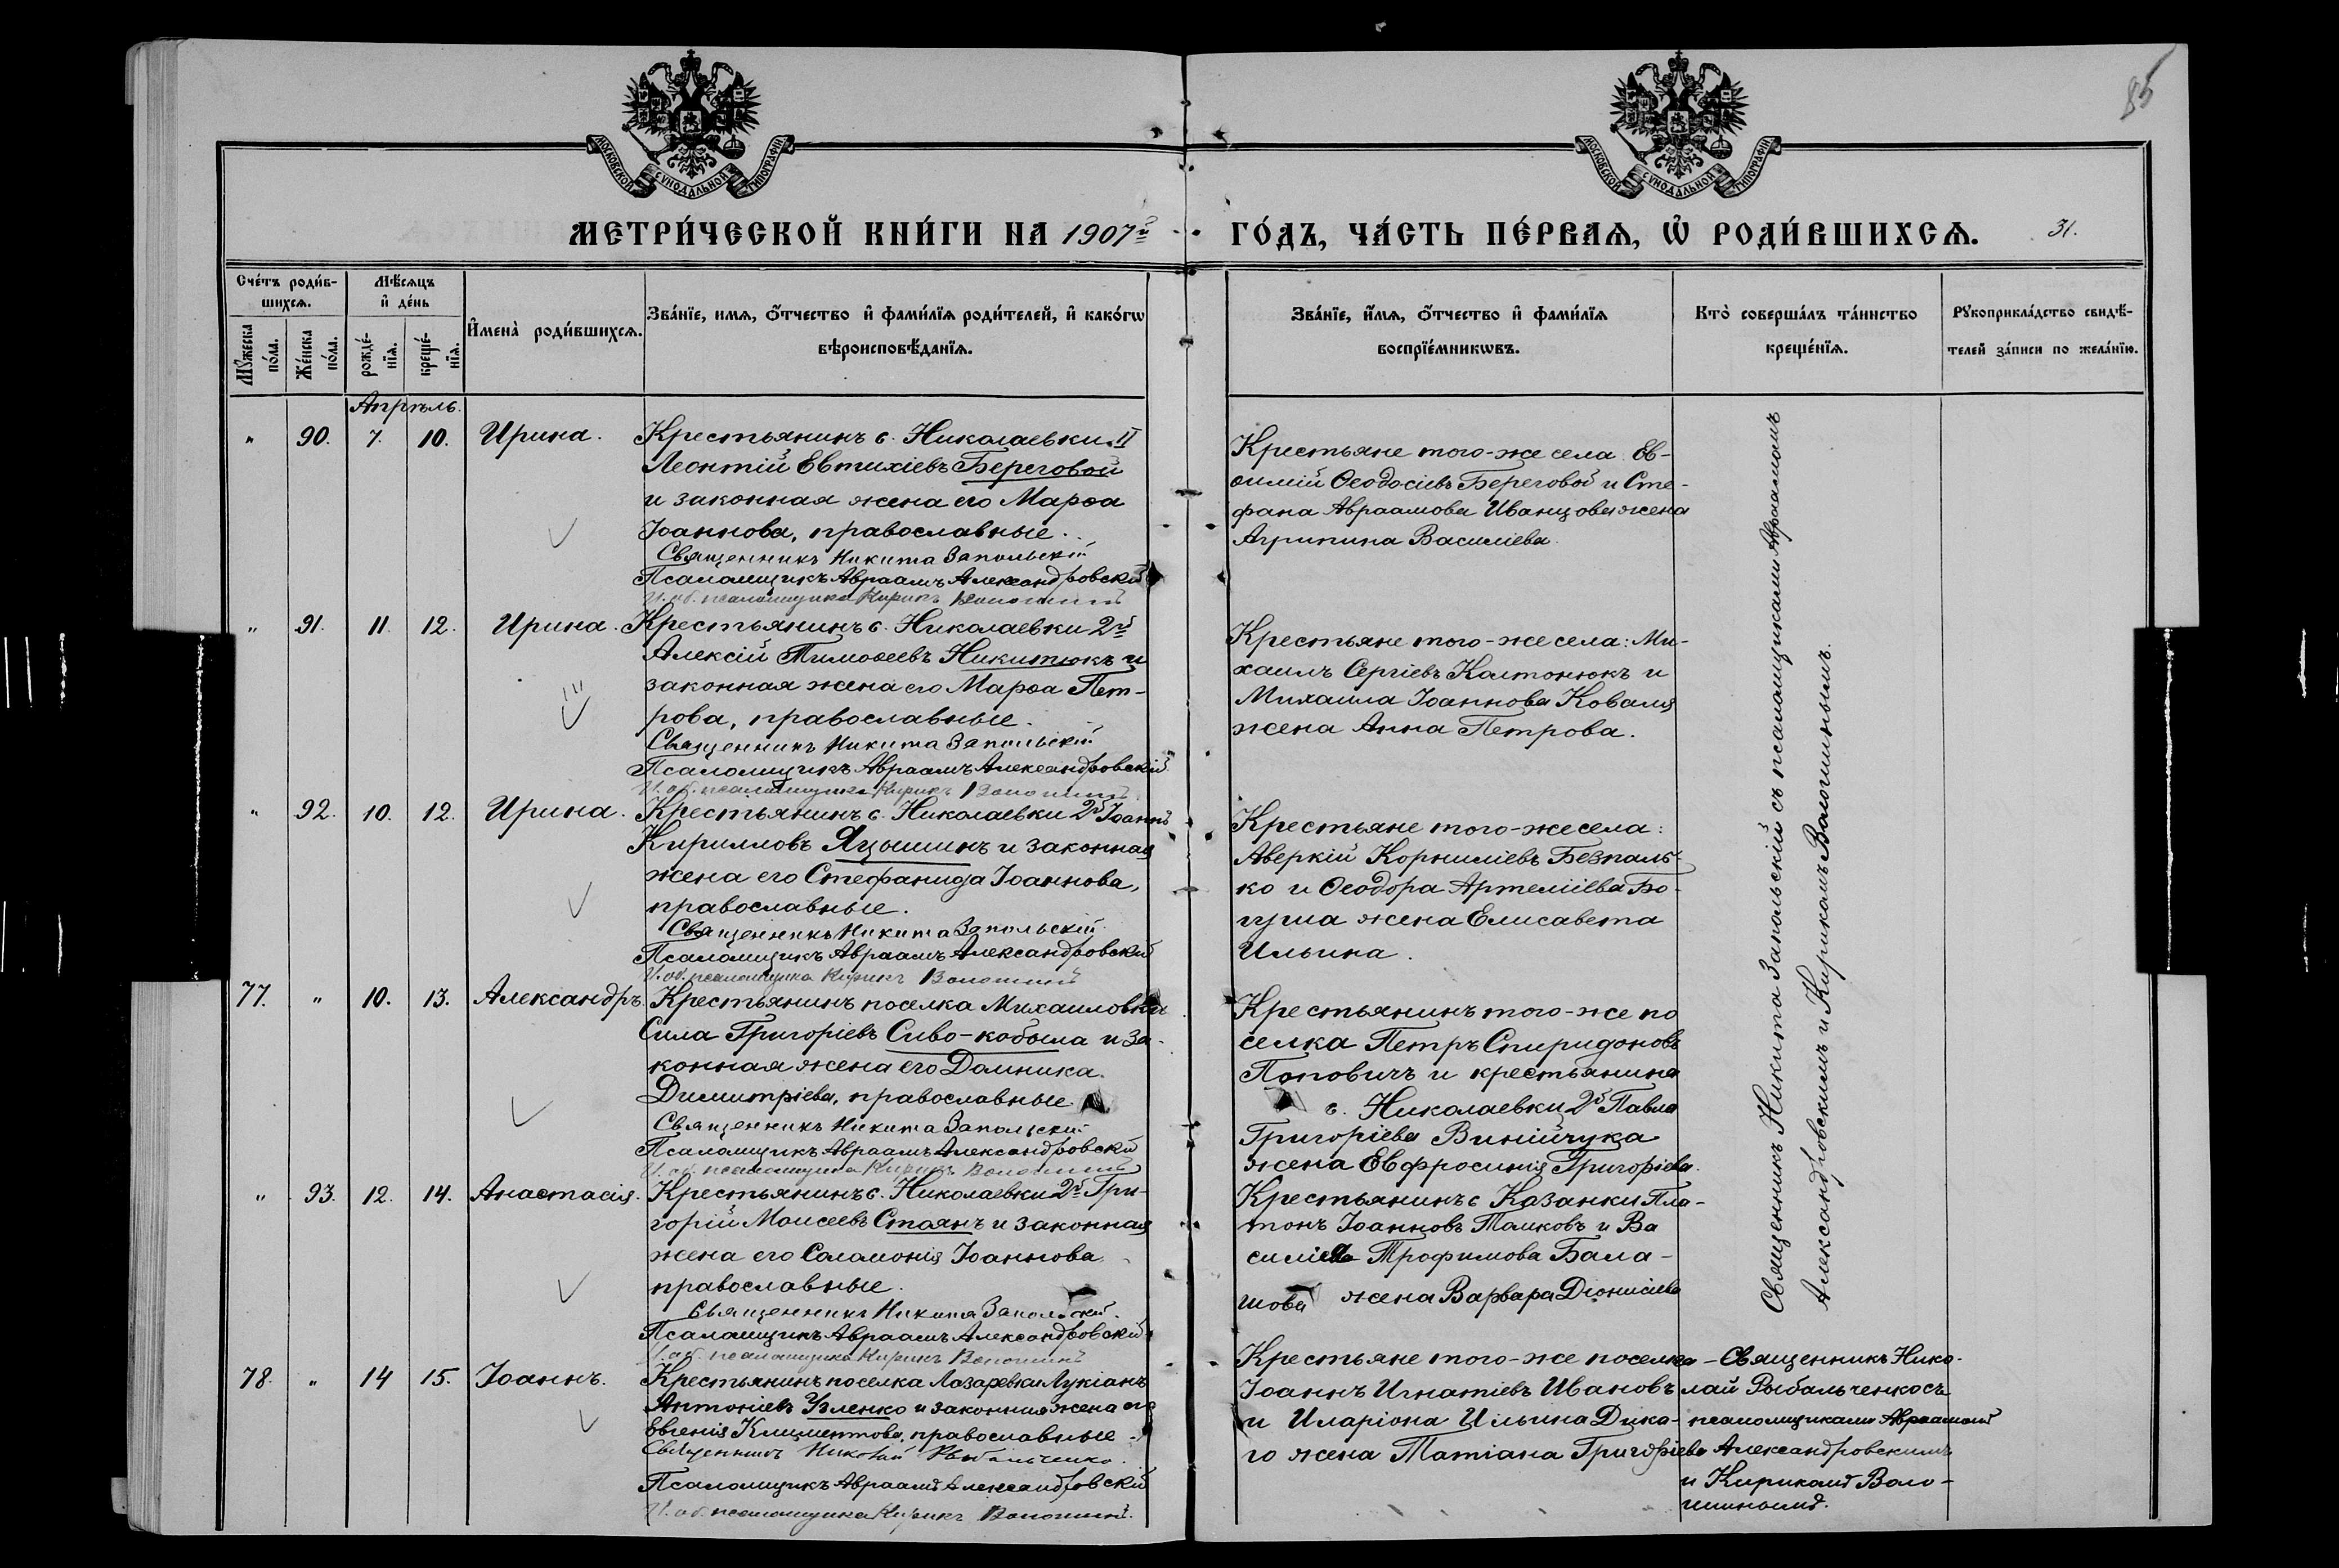 85
МОСКОВСКОЙ СѴНОДАЛЬНОЙ ТИПОГРАФІИ
МОСКОВСКОЙ СѴНОДАЛЬНОЙ ТИПОГРАФІИ
МЕТРИ́ЧЕСКОЙ КНИ́ГИ НА 1907й ГО́ДЪ, ЧА́СТЬ ПЕ́РВАѦ, Ѽ РОДИ́ВШИХСѦ. 31.
Сче́тъ роди́в-
шихсѧ.
Мꙋ́жеска по́ла.
Же́нска по́ла.
Мѣ́сѧцъ
и҆ де́нь
рожде́-
нїѧ.
креще́-
нїѧ.
И҆мена̀ роди́вшихсѧ.
Зва́нїе, имѧ, ѻ҆́тчество и҆ фами́лїѧ роди́телей, и҆ како́гѡ
вѣроисповѣ́данїѧ.
Зва́нїе, и҆́мѧ, ѻ҆́тчество и҆ фами́лїѧ
воспрїе́мникѡвъ.
Кто̀ соверша́лъ та́инство
креще́нїѧ.
Рꙋкоприкла́дство свидѣ́-
телей за́писи по жела́нїю.
Апрѣль.
" 90. 7. 10. Ирина.
Крестьянинъ с. Николаевки II
Леонтій Евтихіевъ Береговой
и законная жена его Марѳа
Іоаннова, православные.
Священникъ Никита Запольскій
Псаломщикъ Авраамъ Александровскій
И. об. псаломщика Кирикъ Волошинъ
Крестьяне того-же села Ев-
ѳимій Ѳеодосіевъ Береговой и Сте-
фана Авраамова Иванцова жена
Агрипина Василіева.
" 91. 11. 12. Ирина.
Крестьянинъ с. Николаевки 2й
Алексій Тимоѳеевъ Никитюкъ и
законная жена его Марѳа Пет-
рова, православные.
Священникъ Никита Запольскій
Псаломщикъ Авраамъ Александровскій
И. об. псаломщика Кирикъ Волошинъ
Крестьяне того-же села: Ми-
хаилъ Сергіевъ Колтонюкъ и
Михаила Іоаннова Коваля
жена Анна Петрова.
" 92. 10. 12. Ирина.
Крестьянинъ с. Николаевки 2й Іоаннъ
Кирилловъ Яцышинъ и законная
жена его Стефанида Іоаннова,
православные.
Священникъ Никита Запольскій
Псаломщикъ Авраамъ Александровскій
И. об. псаломщика Кирикъ Волошинъ
Крестьяне того-же села:
Аверкій Корниліевъ Безпаль-
ко и Ѳеодора Артеміева Бо-
гуша жена Елисавета
Ильина.
77. " 10. 13. Александръ.
Крестьянинъ поселка Михаиловки
Сила Григоріевъ Сиво-кобыла и за-
конная жена его Домника
Димитріева, православные
Священникъ Никита Запольскій
Псаломщикъ Авраамъ Александровскій
И. об. псаломщика Кирикъ Волошинъ
Крестьянинъ того-же по
селка Петръ Спиридоновъ
Поповичъ и крестьянина
с. Николаевки 2й Павла
Григоріева Винійчука
жена Евфросинія Григоріева.
" 93. 12. 14. Анастасія.
Крестьянинъ с. Николаевки 2й Гри-
горій Моисеевъ Стоянъ и законная
жена его Соломонія Іоаннова
православные.
Священникъ Никита Запольскій
Псаломщикъ Авраамъ Александровскій
И. об. псаломщика Кирикъ Волошинъ
Крестьянинъ с Казанки Пла-
тонъ Іоанновъ Тамковъ и Ва
силіева Трофимова Бала-
шова жена Варвара Діонисіева
78. " 14 15. Іоаннъ.
Крестьянинъ поселка Лазаревки Лукіанъ
Антоніевъ Узленко и законная жена его
Евгенія Климентова, православные
Священникъ Николай Рыбальченко.
Псаломщикъ Авраамъ Александровскій
И. об. псаломщика Кирикъ Волошинъ.
Крестьяне того-же поселка
Іоаннъ Игнатіевъ Ивановъ
и Иларіона Ильина Дико-
го жена Татіана Григоріева
Священникъ Никита Запольскій съ псаломщиками Авраамомъ
Александровскимъ и Кирикомъ Волошинымъ.
Священникъ Нико-
лай Рыбальченко съ
псаломщиками Авраамомъ
Александровскимъ
и Кирикомъ Воло-
шинымъ.